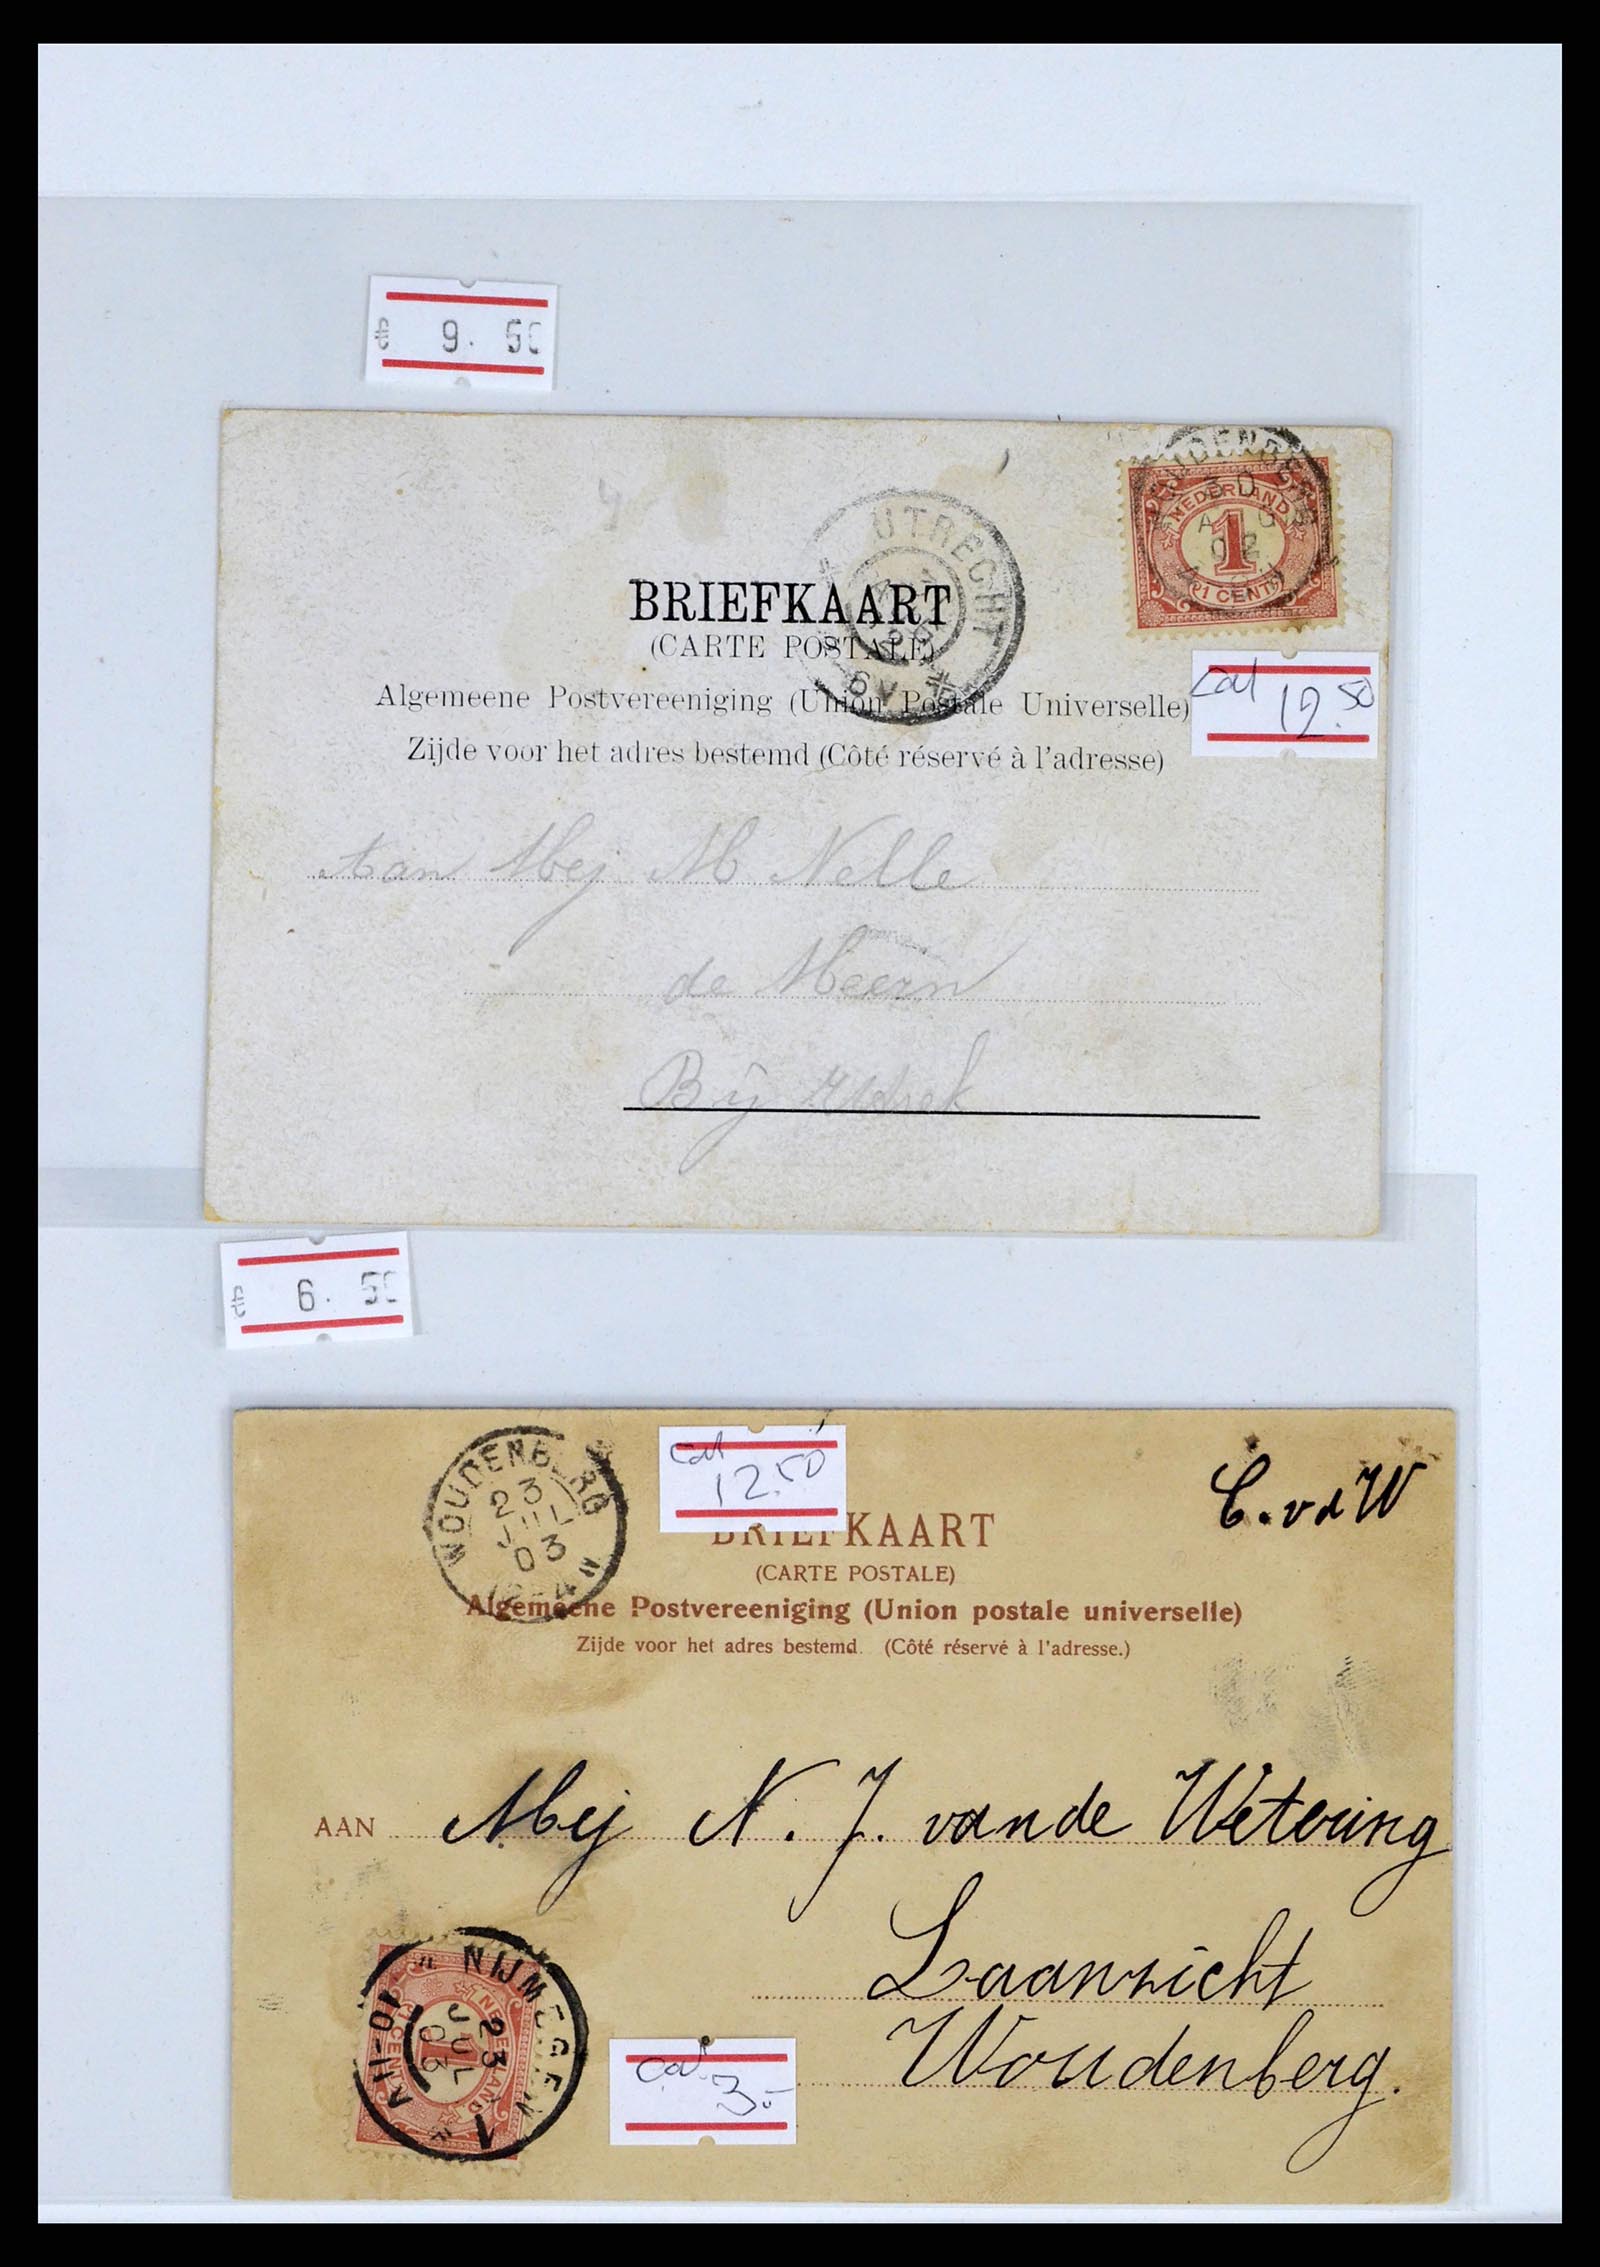 € 9. 50
WOUDENBERG
30
AUG
02
NEDERLAND
1
1 CENT
UTRECHT
6V
BRIEFKAART
(CARTE POSTALE)
Algemeene Postvereeniging (Union Postale Universelle)
cal 12.50
Zijde voor het adres bestemd (Côté réservé à l'adresse)
Aan Mej M Nelle
de Meern
Bij
€ 6. 50
WOUDENBERG
23
JUL
03
cal
12.50
C. v d W
BRIEFKAART
(CARTE POSTALE)
Algemeene Postvereeniging (Union postale universelle)
Zijde voor het adres bestemd. (Côté réservé à l'adresse.)
AAN Mej N. J. van de Wetering
Laanzicht
Woudenberg.
NIJMEGEN
23
JUL
03
10-11V
1
NEDERLAND
1
1 CENT
cal
3.-